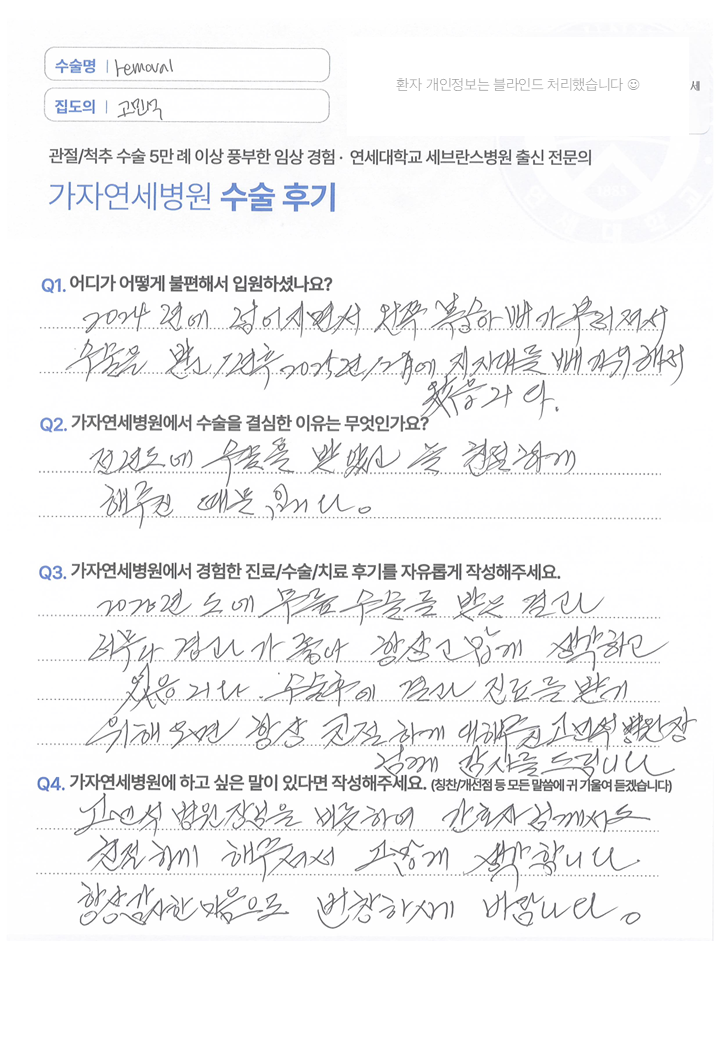 수술명 | removal
환자 개인정보는 블라인드 처리했습니다 ☺
세
집도의 | 고민석
관절/척추 수술 5만 례 이상 풍부한 임상 경험 · 연세대학교 세브란스병원 출신 전문의
가자연세병원 수술 후기
Q1. 어디가 어떻게 불편해서 입원하셨나요?
2024 년에 넘어지면서 왼쪽 복숭아 뼈가 부러져서
수술을 받고 1년후 2025년 12월에 지지대를 빼기 위해
Q2. 가자연세병원에서 수술을 결심한 이유는 무엇인가요?
전년도에 수술을 받았고 늘 친절하게
해주진 때문입니다。
Q3. 가자연세병원에서 경험한 진료/수술/치료 후기를 자유롭게 작성해주세요.
도에 무릎 수술을 받은 결과
너무나 결과가 좋아 항상 고맙게 생각하고
있습니다. 수술후에 결과 진료를 받기
위해 오면 항상 친절하게 대해주신 고민석 병원장
님께 감사를 드립니다
Q4. 가자연세병원에 하고 싶은 말이 있다면 작성해주세요. (칭찬/개선점 등 모든 말씀에 귀 기울여 듣겠습니다)
고민석 병원장님을 비롯하여 간호사님께서도
친절하게 해주셔서 고맙게 생각합니다.
항상 감사한 마음으로 번창하시게 바랍니다。